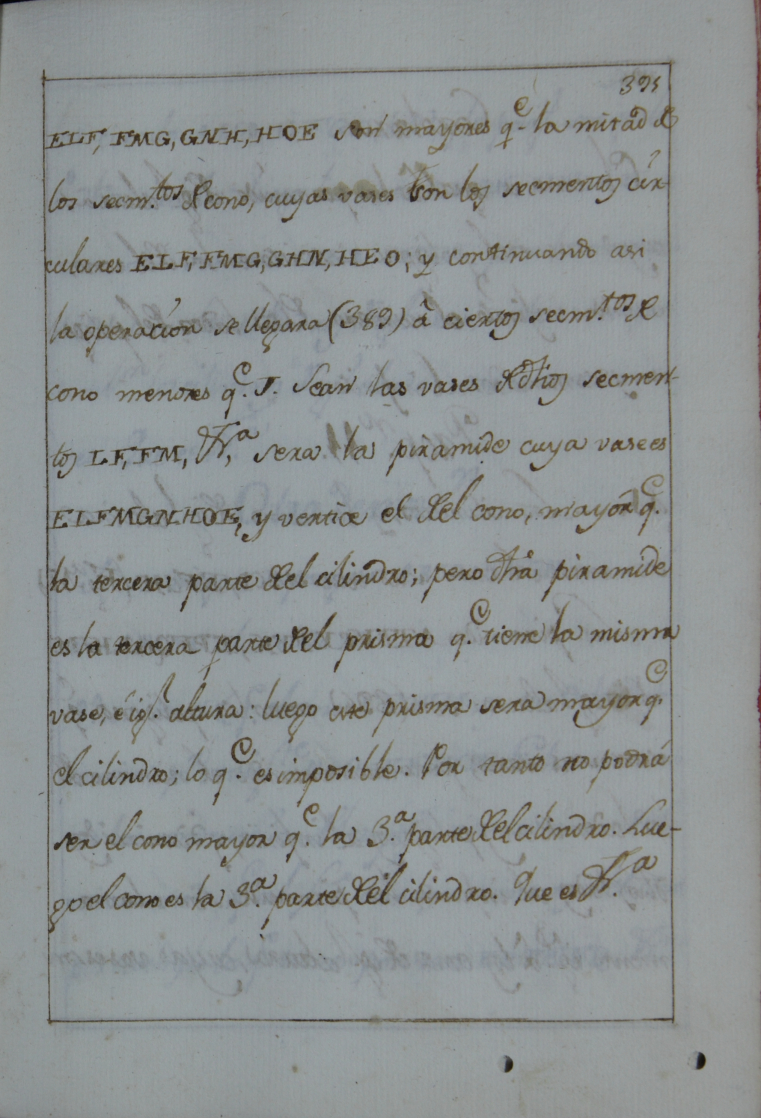 395
ELF, FMG, GNH, HOE son mayores q.e la mitad de
los secm.tos del cono, cuyas vases son los secmentos cir-
culares ELF, FMG, GHN, HEO; y continuando asi
la operación se llegara (389) â ciertos secm.tos de
cono menores q.e J. Sean las vases de dhos secmen-
tos LF, FM, &.a sera la piramide cuya vase es
ELFMGNHOE, y vertice el del cono, mayor q.e
la tercera parte del cilindro; pero dha piramide
es la tercera parte del prisma q.e tiene la misma
vase, é ig.l altura: luego este prisma sera mayor q.e
el cilindro; lo q.e es imposible. Por tanto no podrá
ser el cono mayor q.e la 3.a parte del cilindro. Lue-
go el cono es la 3.a parte del cilindro. Que es &.a